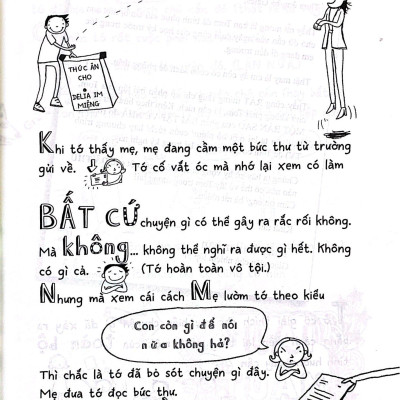 THỨC ĂN
CHO
DELIA IM
MIỆNG
Khi tớ thấy mẹ, mẹ đang cầm một bức thư từ trường
gửi về. Tớ cố vắt óc mà nhớ lại xem có làm
BẤT CỨ chuyện gì có thể gây ra rắc rối không.
Mà không... không thể nghĩ ra được gì hết. Không
có gì cả. (Tớ hoàn toàn vô tội.)
Nhưng mà xem cái cách Mẹ lườm tớ theo kiểu
Con còn gì để nói
nữa không hả?
Thì chắc là tớ đã bỏ sót chuyện gì đấy.
Mẹ đưa tớ đọc bức thư.